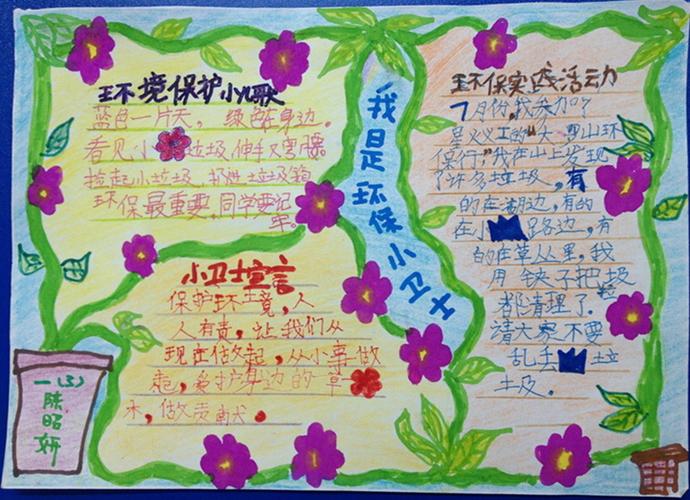 环境保护小儿歌
蓝色一片天，绿色在身边。
看见小垃圾，伸手又弯腰。
捡起小垃圾，扔进垃圾箱
环保最重要，同学要记
牢。
小卫士宣言
保护环境，人
人有责，让我们从
现在做起，从小事做
起，爱护身边的一草一
木，做贡献。
我是环保小卫士
环保实践活动
7月份，我参加了
星火义工的“大雪山环
保行”，我在山上发现
了许多垃圾，有
的在湖边，有的
在小路边，有
的在草丛里，我
用铗子把垃圾
都清理了。
请大家不要
乱丢垃
圾。
一(3)
陈昭妍